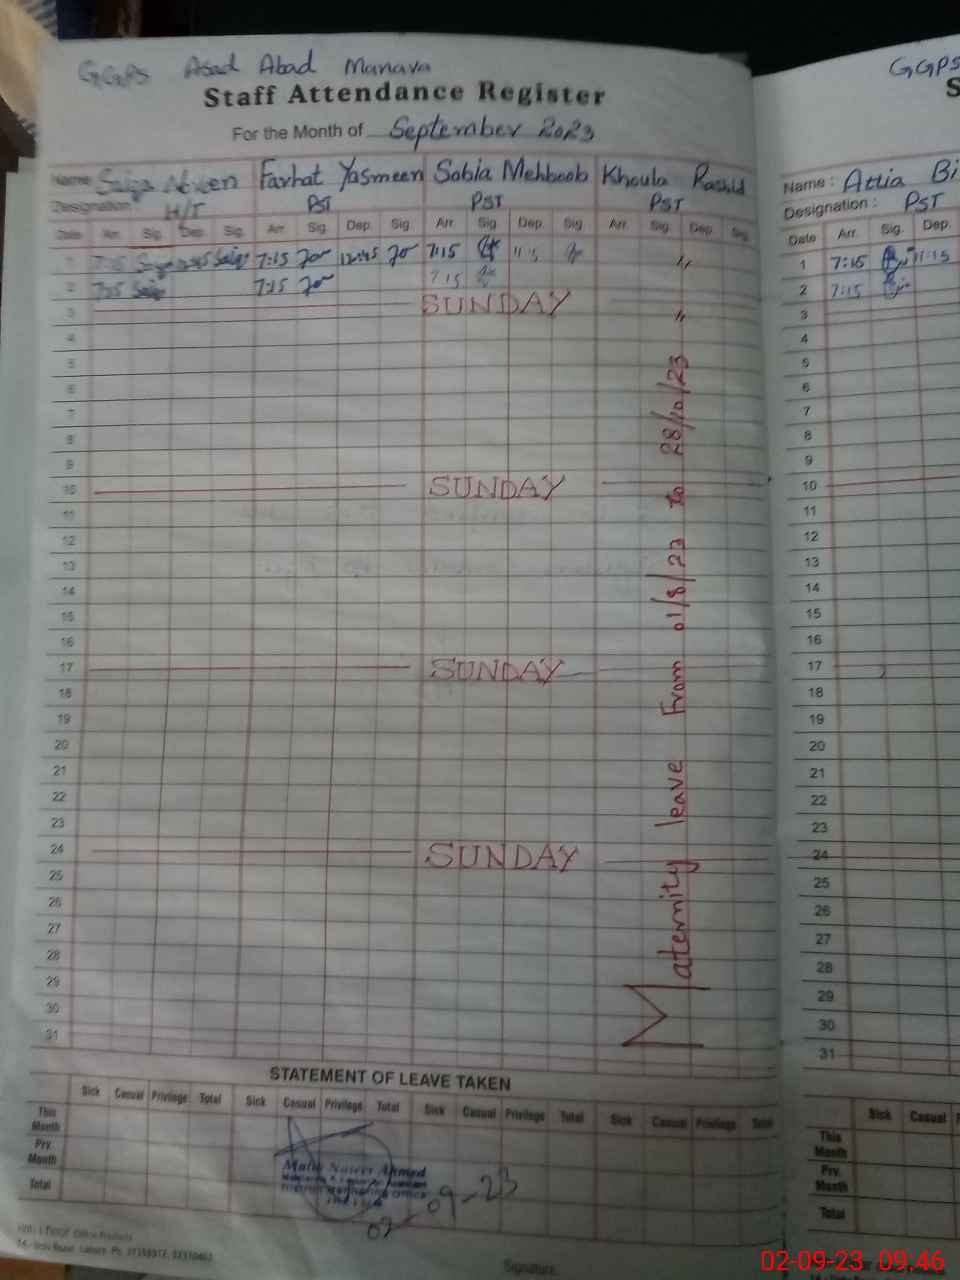 GGPS Asad Abad Manava
Staff Attendance Register
For the Month of September 2023
Name Farhat Yasmeen Sabia Mehboob Khoula Rashid
Designation H/T PST PST PST
Date Arr. Sig. Dep. Sig. Arr. Sig. Dep. Sig. Arr. Sig. Dep. Sig. Arr. Sig. Dep. Sig.
1 7:15 7:15 12:45 7:15 11:15 "
2 7:15 7:15 7:15
3 SUNDAY "
4
5
6
7
8
9
10 SUNDAY
11
12
13
14
15
16
17 SUNDAY
18
19
20
21
22
23
24 SUNDAY
25
26
27
28
29
30
31
Maternity leave From 01/8/23 to 28/10/23
STATEMENT OF LEAVE TAKEN
Sick Casual Privilege Total Sick Casual Privilege Total Sick Casual Privilege Total Sick Casual Privilege Total
This Month
Prv. Month
Total
Ahmed
02-09-23
Signature
GGPS
S
Name : Attia Bi
Designation : PST
Date Arr. Sig. Dep.
1 7:15 11:15
2 7:15
3
4
5
6
7
8
9
10
11
12
13
14
15
16
17
18
19
20
21
22
23
24
25
26
27
28
29
30
31
Sick Casual P
This Month
Prv. Month
Total
02-09-23 09:46